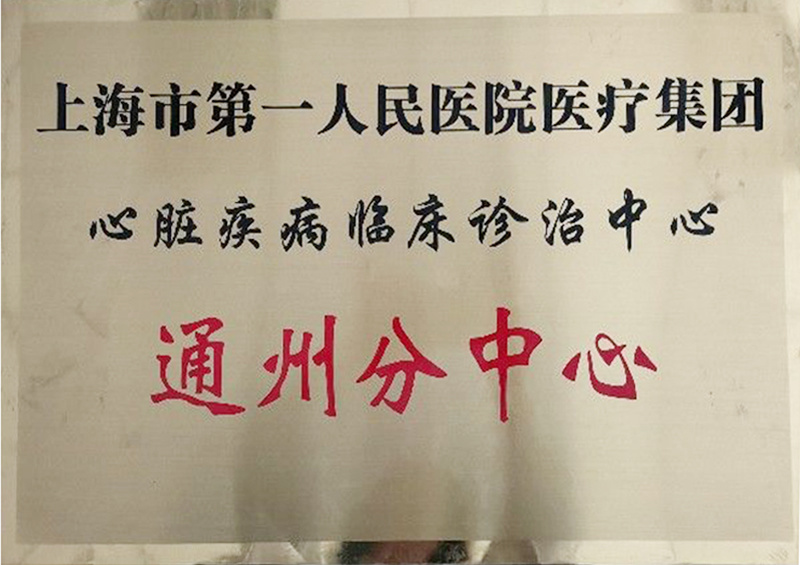 上海市第一人民医院医疗集团
心脏疾病临床诊治中心
通州分中心